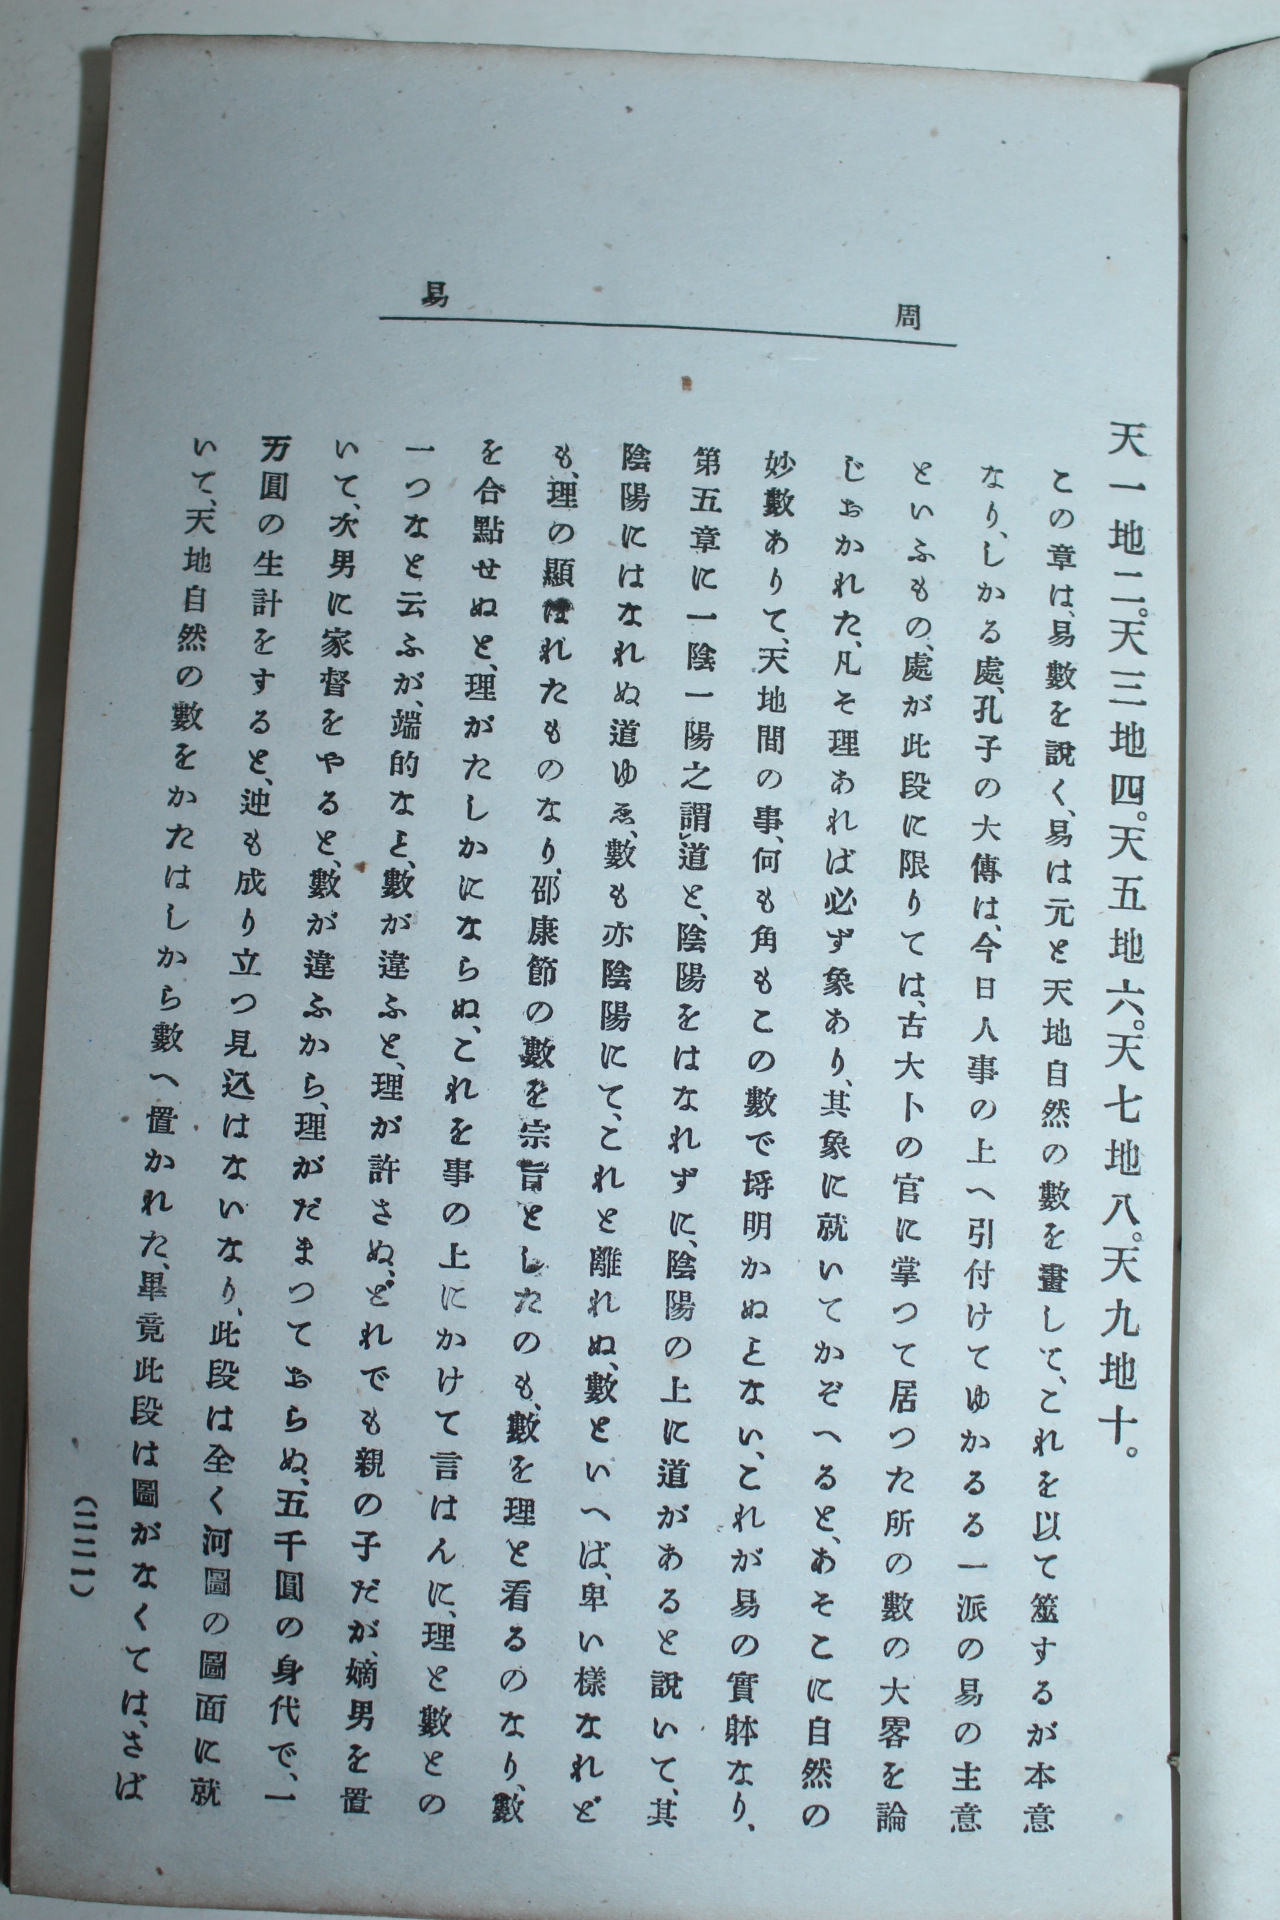 周易
天一地二。天三地四。天五地六。天七地八。天九地十。
この章は、易數を說く、易は元と天地自然の數を畫して、これを以て筮するが本意
なり、しかる處、孔子の大傳は、今日人事の上へ引付けてゆかるる一派の易の主意
といふもの、處が此段に限りては、古大卜の官に掌つて居つた所の數の大畧を論
じおかれた、凡そ理あれば必ず象あり、其象に就いてかぞへると、あそこに自然の
妙數ありて、天地間の事、何も角もこの數で埓明かぬとない、これが易の實躰なり、
第五章に一陰一陽之謂㆑道と、陰陽をはなれずに、陰陽の上に道があると說いて、其
陰陽にはなれぬ道ゆゑ、數も亦陰陽にて、これと離れぬ、數といへば、卑い樣なれど
も、理の顯はれたものなり、邵康節の數を宗旨としたのも、數を理と看るのなり、數
を合點せぬと、理がたしかにならぬ、これを事の上にかけて言はんに、理と數との
一つなと云ふが、端的なと、數が違ふと、理が許さぬ、どれでも親の子だが、嫡男を置
いて、次男に家督をやると、數が違ふから、理がだまつておらぬ、五千圓の身代で、一
万圓の生計をすると、迚も成り立つ見込はないなり、此段は全く河圖の圖面に就
いて、天地自然の數をかたはしから數へ置かれた、畢竟此段は圖がなくては、さば
（二二一）